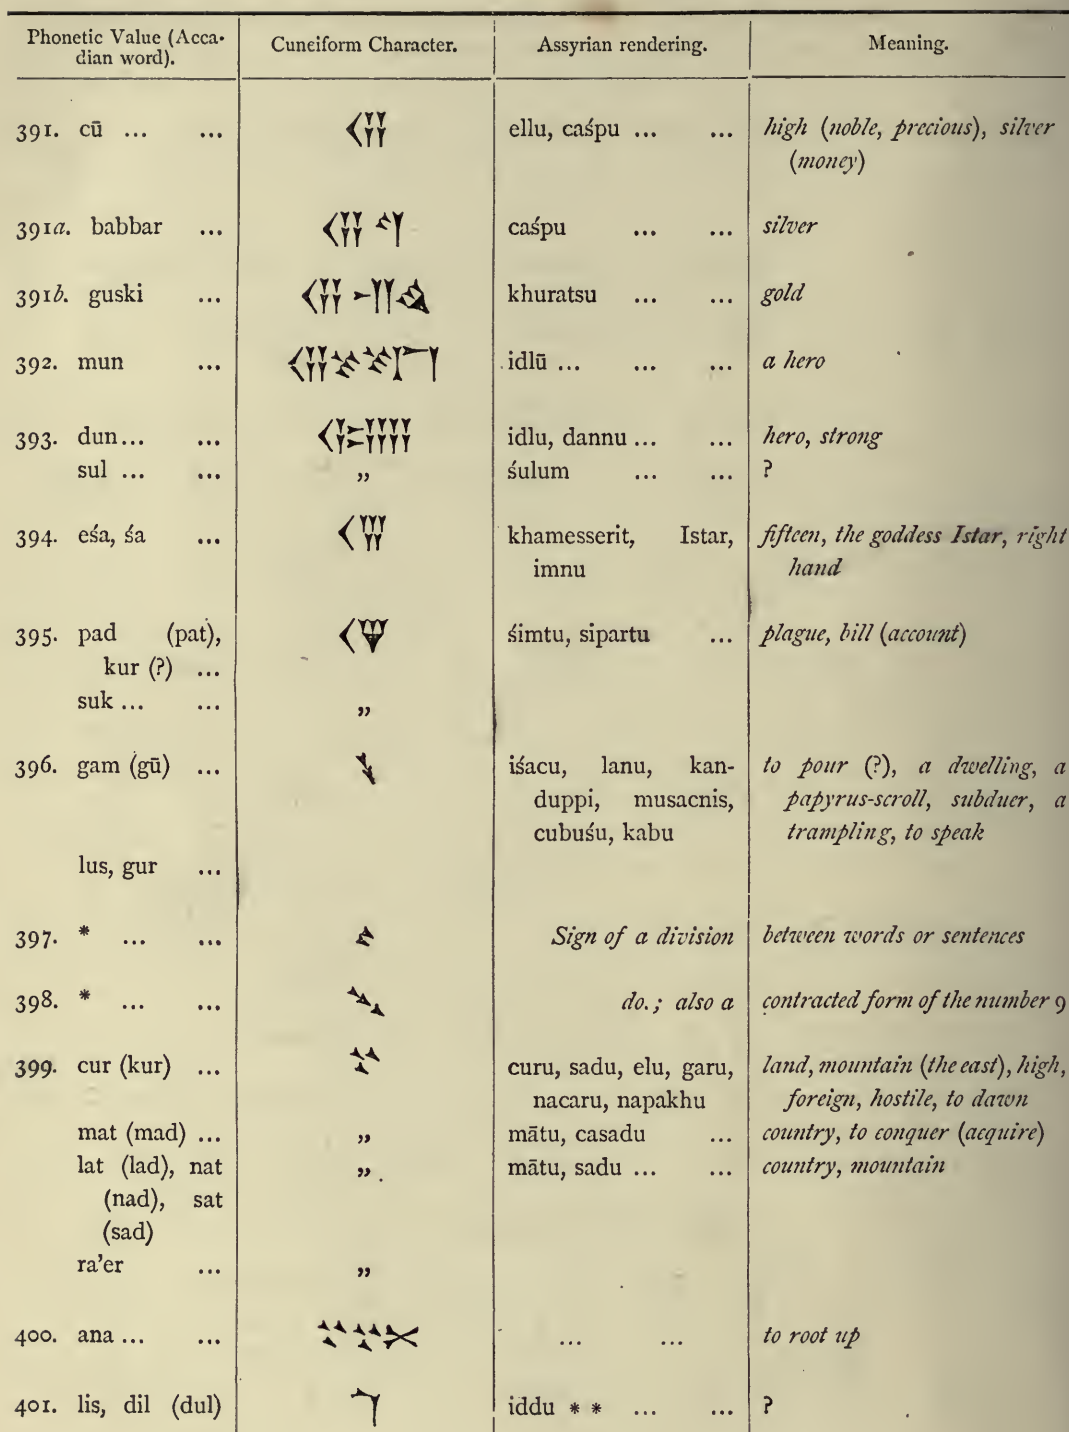 Phonetic Value (Acca- Cuneiform Character. Assyrian rendering. Meaning.
dian word).
391. cū ... ... 𒆬 ellu, caśpu ... ... high (noble, precious), silver
(money)
391a. babbar ... 𒆬 𒌓 caśpu ... ... silver
391b. guski ... khuratsu ... ... gold
392. mun ... idlū ... ... ... a hero
393. dun... ... 𒂄 idlu, dannu ... ... hero, strong
sul ... ... ,, śulum ... ... ?
394. eśa, śa ... 𒌋𒐊 khamesserit, Istar, fifteen, the goddess Istar, right
imnu hand
395. pad (pat), śimtu, sipartu ... plague, bill (account)
kur (?) ...
suk ... ... ,,
396. gam (gū) ... 𒃵 iśacu, lanu, kan- to pour (?), a dwelling, a
duppi, musacnis, papyrus-scroll, subduer, a
cubuśu, kabu trampling, to speak
lus, gur ...
397. * ... ... Sign of a division between words or sentences
398. * ... ... do.; also a contracted form of the number 9
399. cur (kur) ... 𒆳 curu, sadu, elu, garu, land, mountain (the east), high,
nacaru, napakhu foreign, hostile, to dawn
mat (mad) ... ,, mātu, casadu ... country, to conquer (acquire)
lat (lad), nat ,, mātu, sadu ... ... country, mountain
(nad), sat
(sad)
ra'er ... ,,
400. ana ... ... ... ... to root up
401. lis, dil (dul) iddu * * ... ... ?